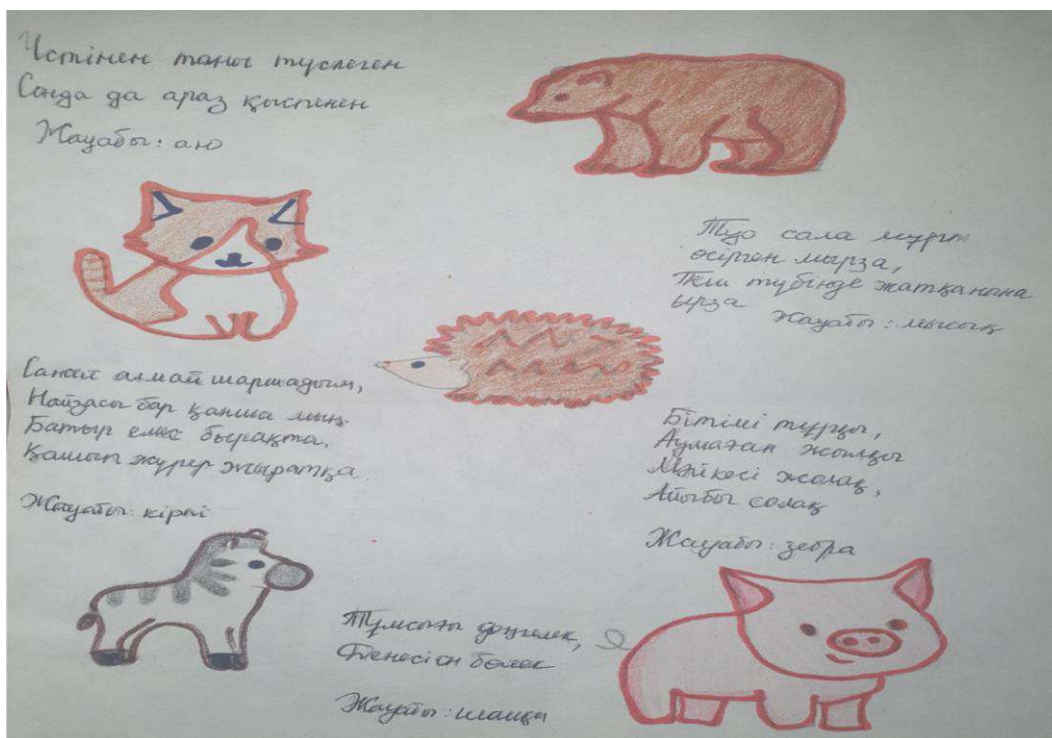 Үстінен тоны түспеген
Сонда да араз қыспенен
Жауабы: аю
Туа сала мұрт
өсірген мырза,
Пеш түбінде жатқанына
ырза
Жауабы: мысық
Санай алмай шаршадым,
Найзасы бар қанша мың.
Батыр емес бірақта,
Қашып жүрер жыратқа.
Жауабы: кірпі
Бітімі тұрқы,
Аумаған жылқы
Мәйкесі жолақ,
Айыбы солақ
Жауабы: зебра
Тұмсығы дөңгелек,
Денесі
Жауабы: шошқа